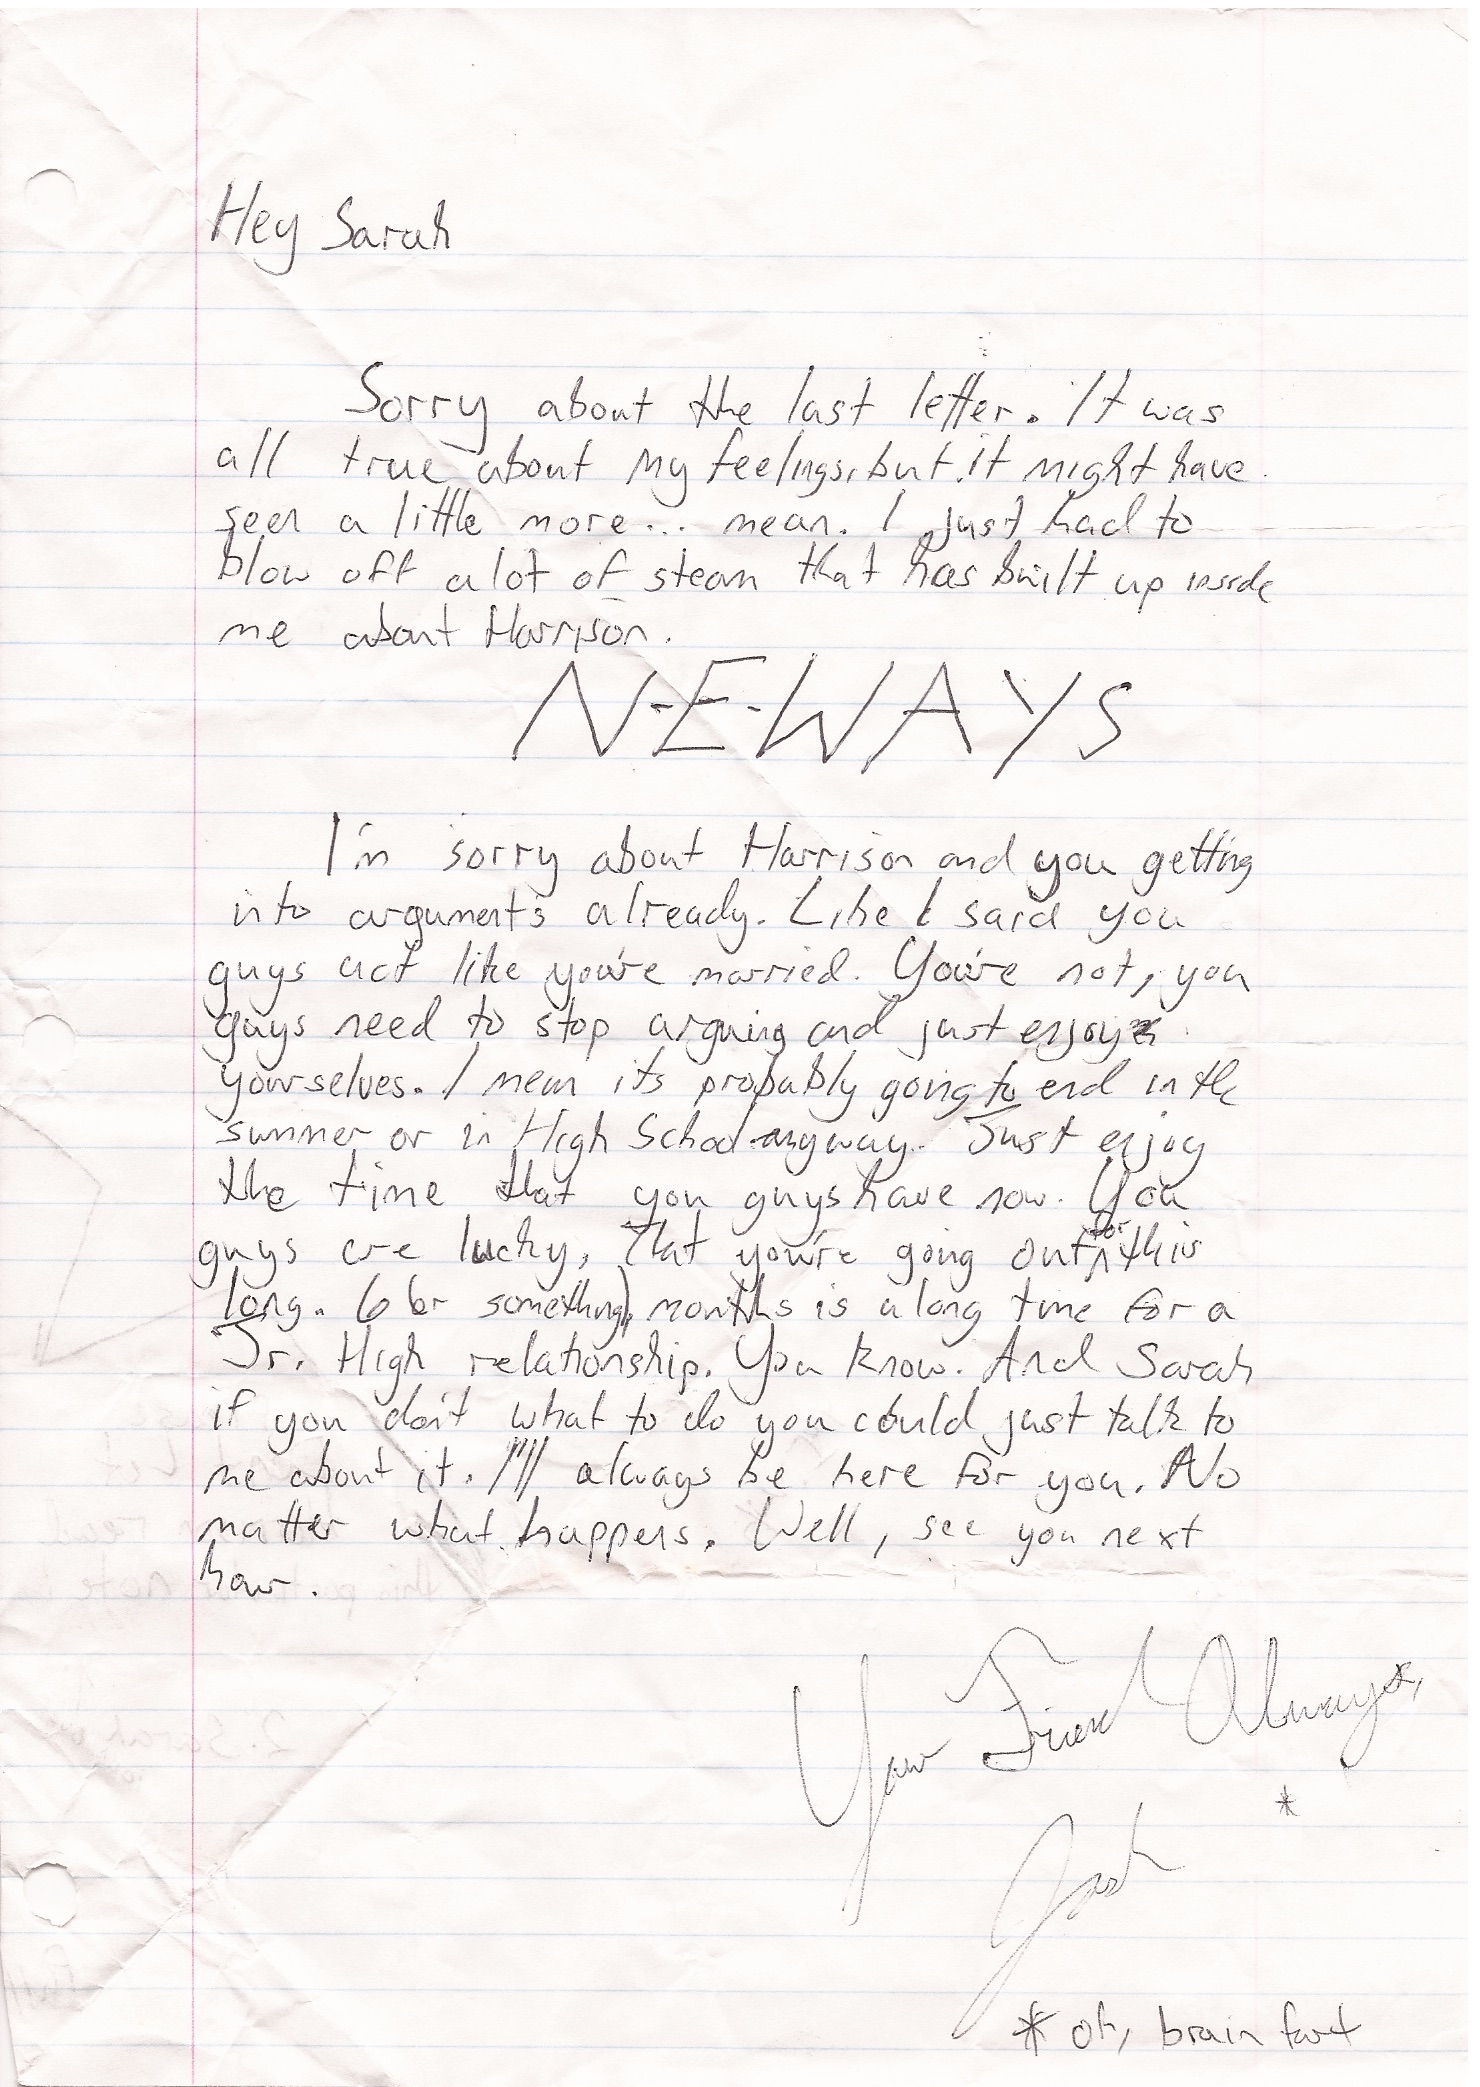 Hey Sarah
Sorry about the last letter. It was
all true about my feelings, but it might have
seen a little more... mean. I just had to
blow off alot of steam that has built up inside
me about Harrison.
N-E-WAYS
I'm sorry about Harrison and you getting
into arguments already. Like I said you
guys act like you're married. You're not, you
guys need to stop arguing and just enjoy
yourselves. I mean its probably going to end in the
summer or in High School anyway. Just enjoy
the time that you guys have now. You
guys are lucky, That you're going out for this
long. 6 (or something) months is a long time for a
Jr. High relationship. You know. And Sarah
if you don't what to do you could just talk to
me about it. I'll always be here for you. No
matter what happens. Well, see you next
hour.
Your Friend Always,
*
Josh
* oh, brain fart